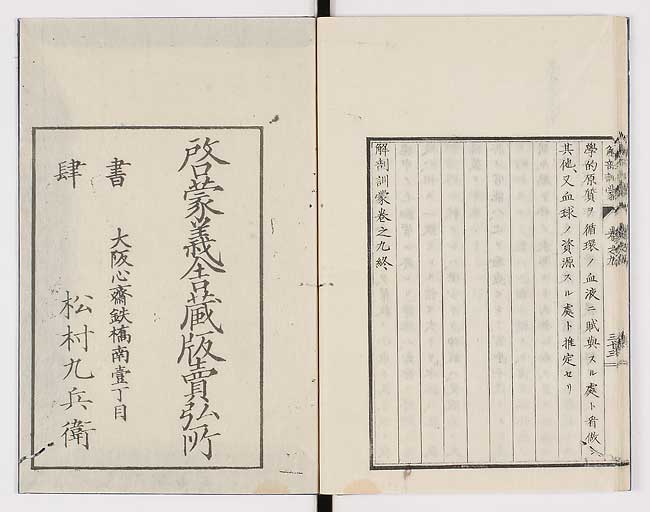 學的原質ヲ循環ノ血液ニ賦與スル處ト看做シ
其他又血球ノ資源スル處ト推定セリ
解剖訓蒙卷之九終
啓蒙義舎蔵版賣弘所
大阪心齋鉄橋南壹丁目
書肆
松村九兵衛